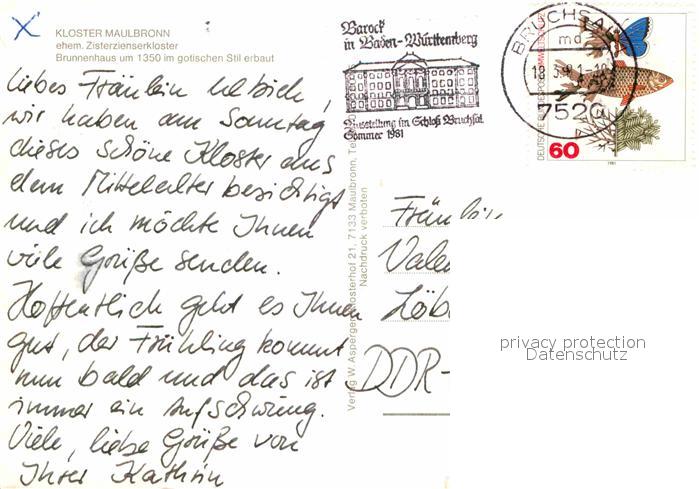 KLOSTER MAULBRONN
ehem. Zisterzienserkloster
Brunnenhaus um 1350 im gotischen Stil erbaut
Liebes Fräulein
wir haben am Sonntag
dieses schöne Kloster aus
dem Mittelalter besichtigt
und ich möchte Ihnen
viele Grüße senden.
Hoffentlich geht es Ihnen
gut, der Frühling kommt
nun bald und das ist
immer ein Aufschwung.
Viele, liebe Grüße von
Ihrer Kathrin
Verlag W. Asperger, Klosterhof 21, 7133 Maulbronn,
Nachdruck verboten
Barock
in Baden-Württemberg
Ausstellung im Schloß Bruchsal
Sommer 1981
BRUCHSAL
md
7520
DEUTSCHE BUNDESPOST
60
1981
Fräulein
DDR-
privacy protection
Datenschutz